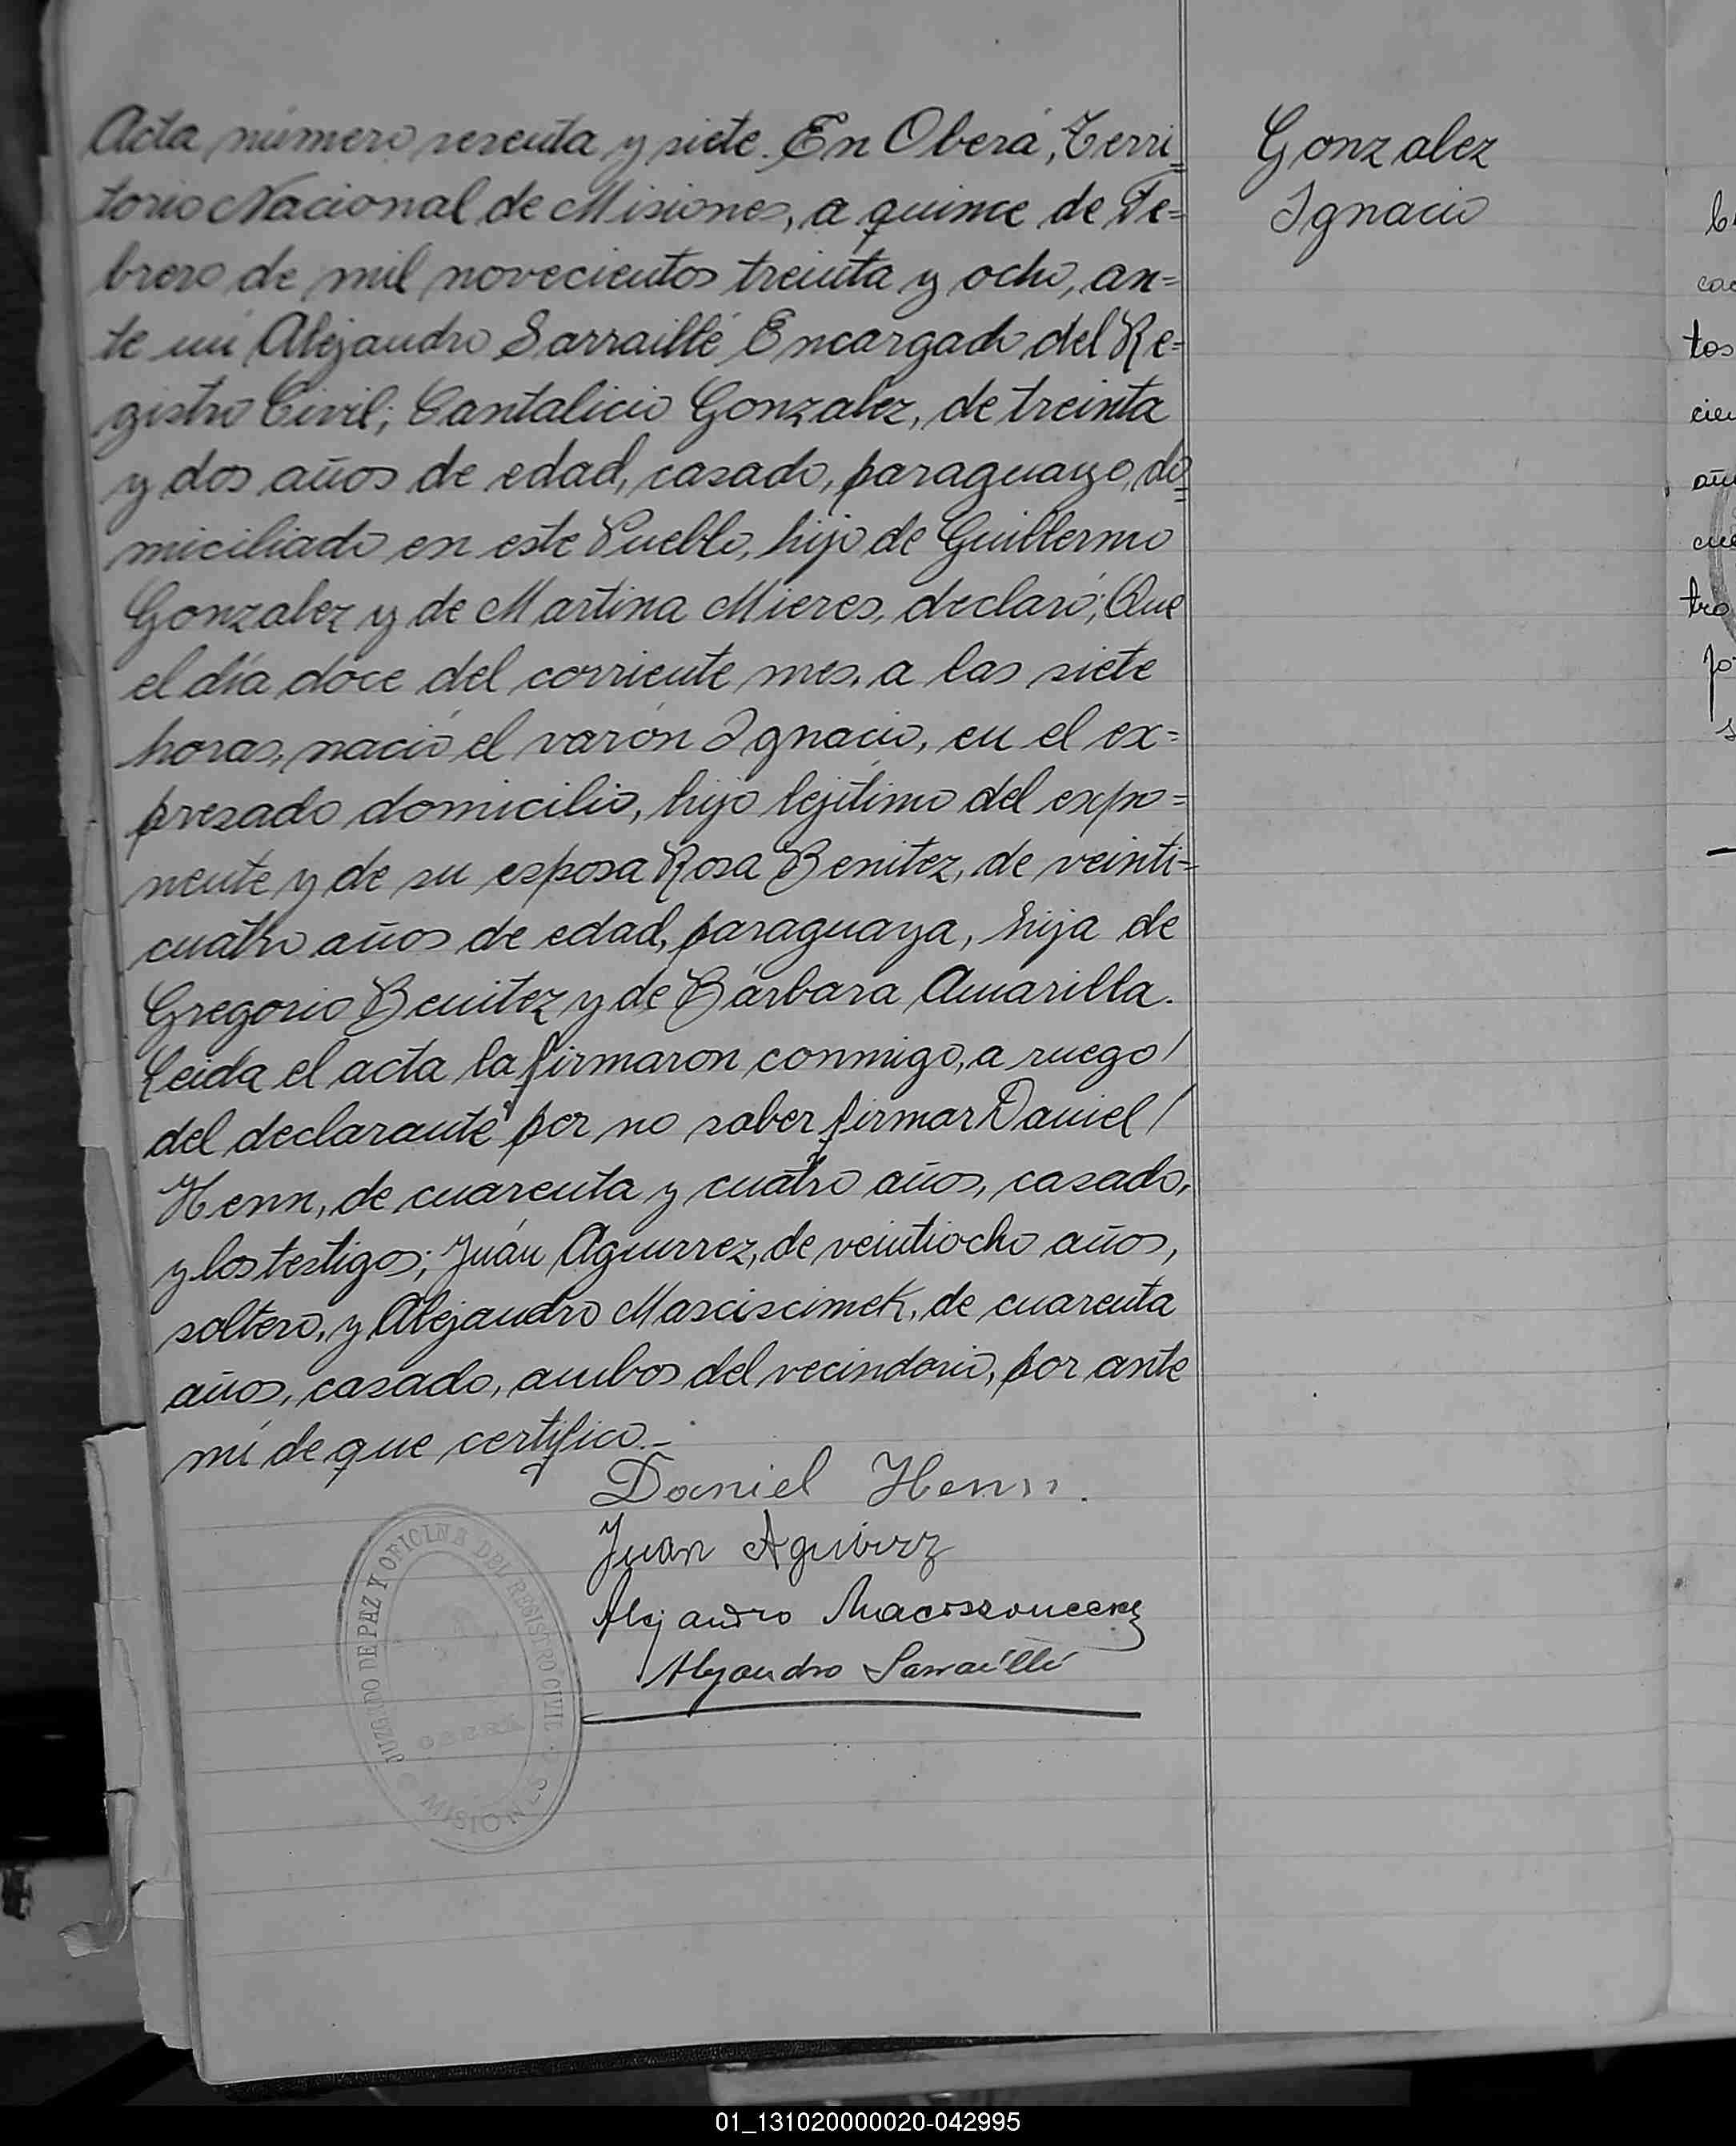 Acta número sesenta y siete. En Oberá, Terri=
torio Nacional de Misiones, a quince de Fe=
brero de mil novecientos treinta y ocho, an=
te mí Alejandro Sarraillé Encargado del Re=
gistro Civil; Cantalicio Gonzalez, de treinta
y dos años de edad, casado, paraguayo, do=
miciliado en este Pueblo, hijo de Guillermo
Gonzalez y de Martina Mieres, declaró; Que
el día doce del corriente mes, a las siete
horas, nació el varón Ignacio, en el ex=
presado domicilio, hijo lejítimo del expo=
nente y de su esposa Rosa Benitez, de veinti=
cuatro años de edad, paraguaya, hija de
Gregorio Benitez y de Bárbara Amarilla.
Leída el acta la firmaron conmigo, a ruego/
del declarante por no saber firmar Daniel/
Henn, de cuarenta y cuatro años, casado,
y los testigos; Juán Aguirrez, de veintiocho años,
soltero, y Alejandro Masciscimek, de cuarenta
años, casado, ambos del vecindario, por ante
mí de que certifico.-
Daniel Henn.
Juan Aguirrz
Alejandro
Alejandro Sarraillé
JUZGADO DE PAZ Y OFICINA DEL REGISTRO CIVIL
MISIONES
Gonzalez
Ignacio
tos
01_131020000020-042995